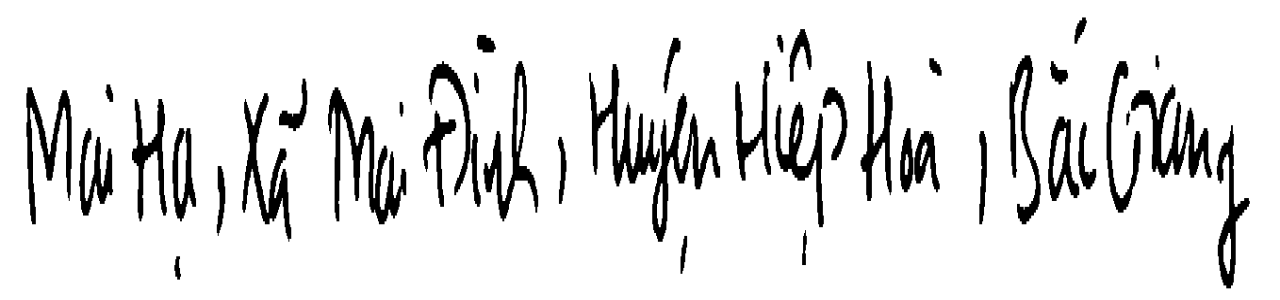 Mai Hạ, Xã Mai Đình, Huyện Hiệp Hoà, Bắc Giang